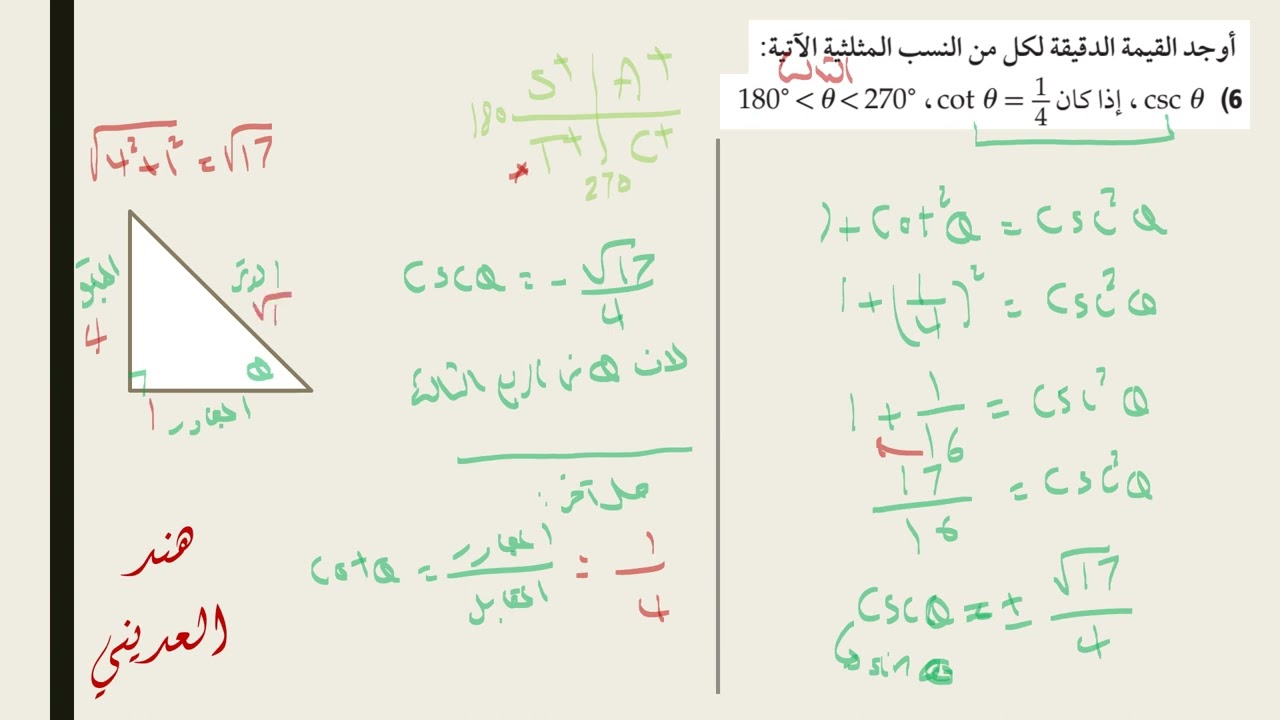 أوجد القيمة الدقيقة لكل من النسب المثلثية الآتية:
الثالث
6) csc θ ، إذا كان cot θ = 1/4 ، 180° < θ < 270°
1 + cot² θ = csc² θ
1 + (1/4)² = csc² θ
1 + 1/16 = csc² θ
17/16 = csc² θ
csc θ = ± √17/4
sin θ
S+ A+
180
T+ C+
270
csc θ = - √17/4
لان θ في الربع الثالث
حل آخر:
cot θ = المجاور/المقابل = 1/4
√4² + 1² = √17
المقابل
4
الوتر
θ
1
المجاور
هند
العديني